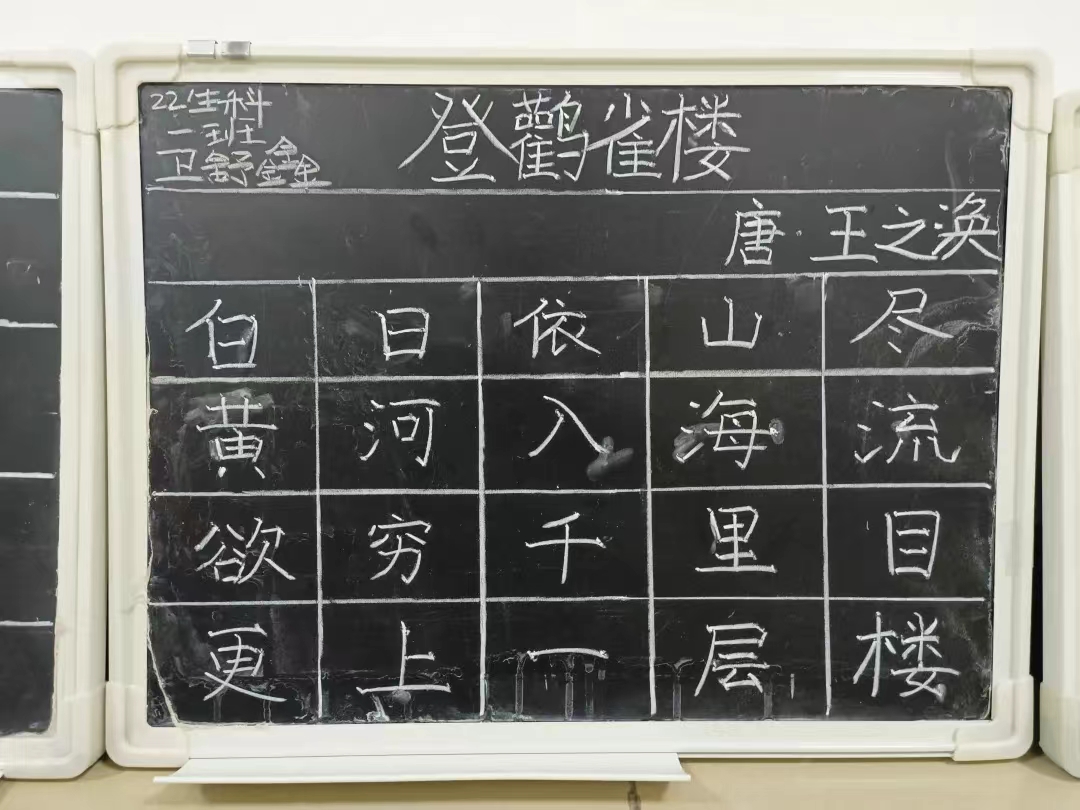 22生科
一班
卫舒鑫
登鹳雀楼
唐·王之涣
白日依山尽
黄河入海流
欲穷千里目
更上一层楼